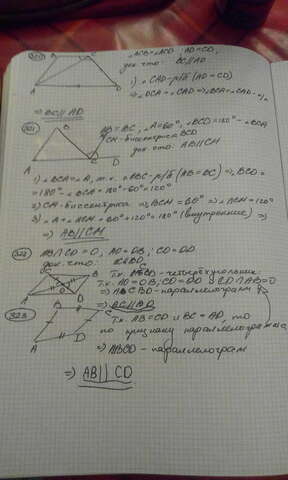 B C ∠ACB=∠ACD AD=CD,
док-что: BC||AD
1) ∠CAD-р/б (AD=CD)
⇒ ∠DCA=∠CAD ⇒ ∠BCA=∠CAD
A D
⇒ BC||AD
321 B AB=BC, ∠A=60°, ∠BCD=180°-∠BCA
CM-биссектриса BCD
док-что: AB||CM
A C D
1) ∠BCA=∠A, т.к. ABC-р/б (AB=BC) ⇒ ∠BCD=
=180°-∠BCA=180°-60°=120°
2) CM-биссектриса ⇒ ∠BCM=60° ⇒ ∠ACM=120°
3) ∠A+∠ACM=60°+120°=180° (внутренние) ⇒
⇒ AB||CM
322 AB∩CD=O, AO=OB, CO=OD
док-что:
Т.к. -четырёхугольник
Т.к. AO=OB, CO=OD и CD∩AB=O
⇒ ACBD-параллелограм
⇒ BC||AD
323 B C
Т.к. AB=CD и BC=AD, то
по признаку параллелограмма
A D
⇒ ABCD-параллелограм
⇒ AB||CD